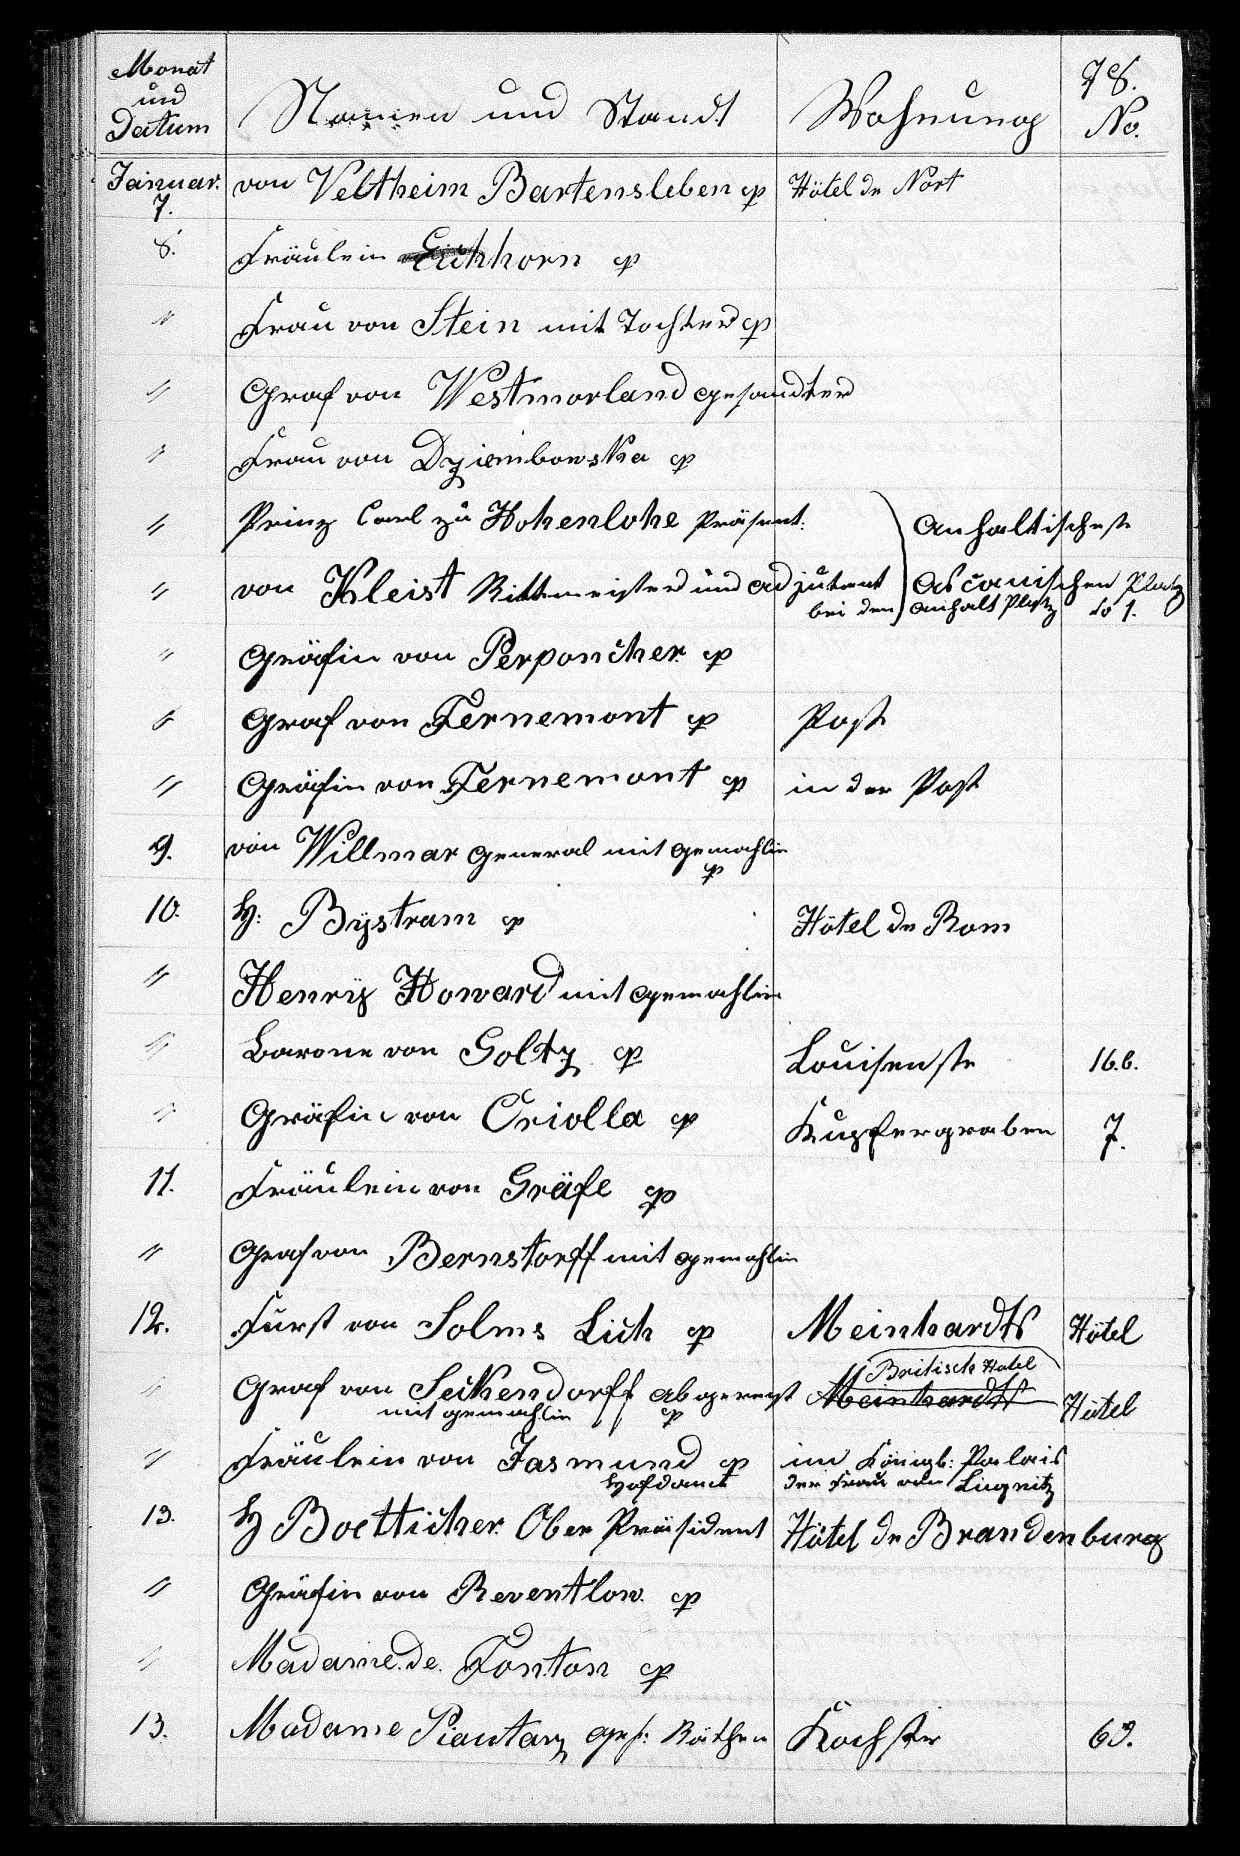 78.
Monat und Datum Namen und Standt Wohnung No.
Januar. 7. von Veltheim Bartensleben p Hôtel de Nort
8. Fräulein Eichhorn p
" Frau von Stein mit Tochter p
" Graf von Westmorland gesandter
" Frau von Dziembowska p
" Prinz Carl zu Hohenlohe Präsent: Anhaltischestr
" von Kleist Rittmeister und adjutent Ascanischen Platz
bei den Anhalt Platz No 1.
" Gräfin von Perponcher p
" Graf von Fernemont p Post
" Gräfin von Fernemont p in der Post
9. von Willmar General mit gemahlin
p
10. H: Bÿstram p Hôtel de Rom
" Henrÿ Howard mit gemahlin
" Barone von Goltz p Louisenstr 16.b.
" Gräfin von Oriolla p Kupfergraben 7.
11. Fräulein von Gräfe p
" Graf von Bernstorff mit gemahlin
12. Fürst von Solms Lich p Meinhardts Hôtel
Britisch Hotel
" Graf von Seckendorff abgereist Meinhardts Hôtel
mit gemahlin p
" Fräulein von Jasmund p im Königl: Palais
Hofdame der Frau von Liegnitz
13. H Boetticher Ober Präsident Hôtel de Brandenburg
" Gräfin von Reventlow. p
" Madame. de. Fonton p
13. Madame Piautaz Räthen Kochstr 63.